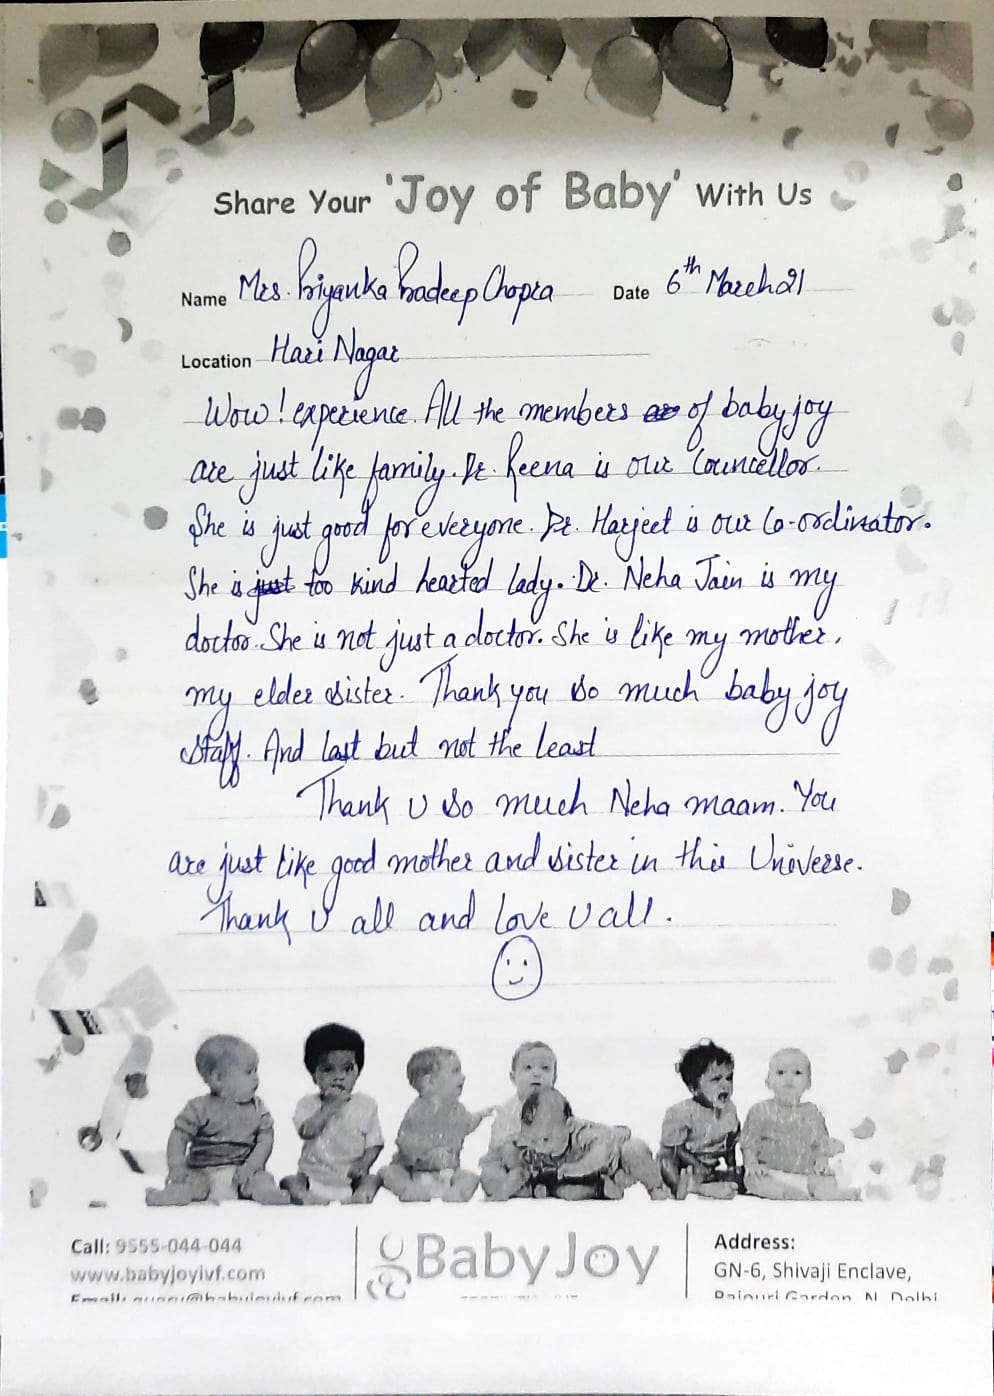 Share Your 'Joy of Baby' With Us
Name Mrs. Priyanka Pradeep Chopra Date 6th March 21
Location Hari Nagar
Wow! experience. All the members of babyjoy
are just like family. Dr. Reena is our Councellor.
She is just good for everyone. Dr. Harjeet is our Co-ordinator.
She is just too kind hearted lady. Dr. Neha Jain is my
doctor. She is not just a doctor. She is like my mother,
my elder sister. Thank you so much baby joy
staff. And last but not the least
Thank u so much Neha maam. You
are just like good mother and sister in this Universe.
Thank U all and love u all.
Call: 9555-044-044
www.babyjoyivf.com
Email: query@babyjoyivf.com
Baby Joy
Address:
GN-6, Shivaji Enclave,
Rajouri Garden, N. Delhi